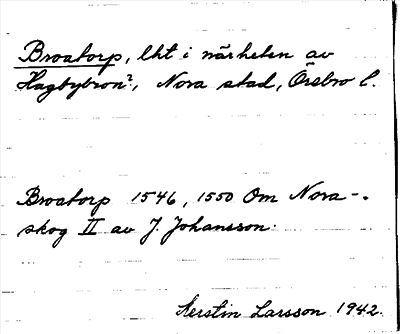 Broatorp, lht i närheten av
Hagbybron?, Nora stad, Örebro l.
Broatorp 1546, 1550 Om Nora-
skog II av J. Johansson.
Kerstin Larsson 1942.